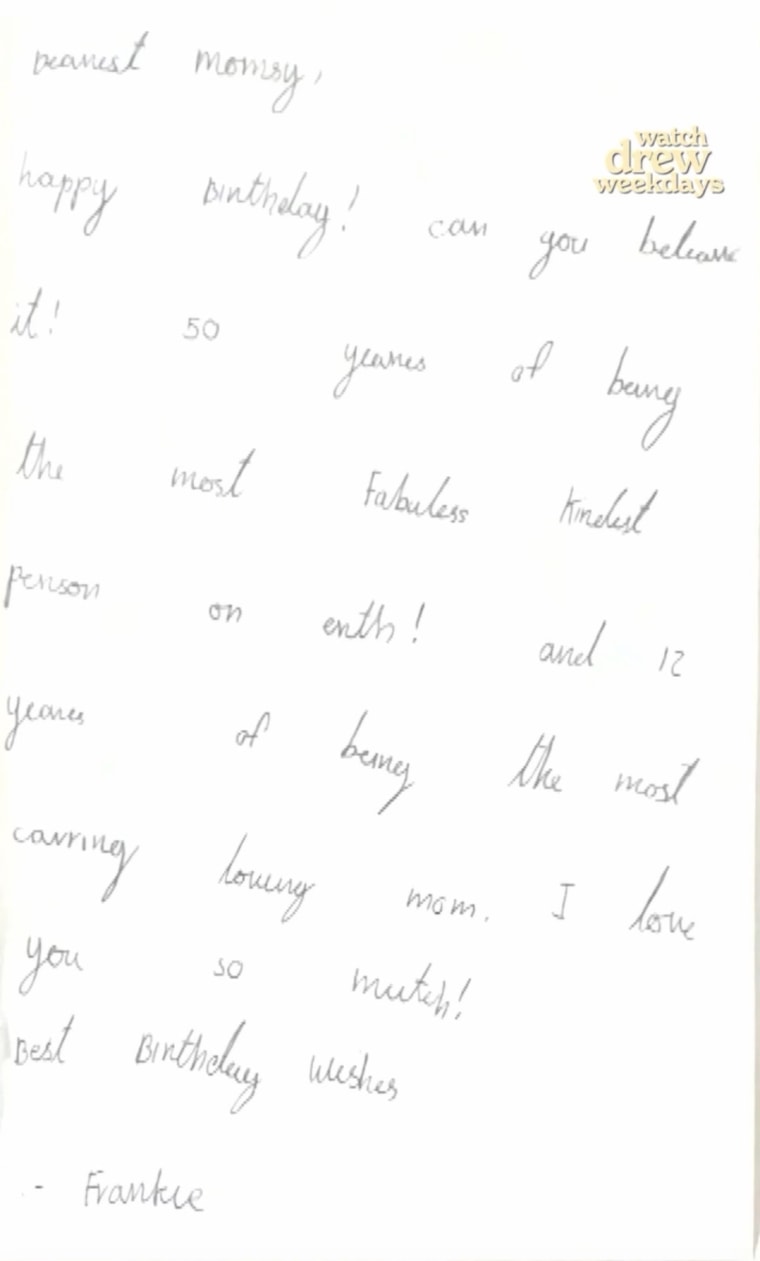 Dearest momsy,
watch
drew
weekdays
happy Birthday! can you beleave
it! 50 yeares of being
the most Fabuless kindest
person on erth! and 12
yeares of being the most
carring loving mom. I love
you so mutch!
Best Birthday wishes
- Frankie